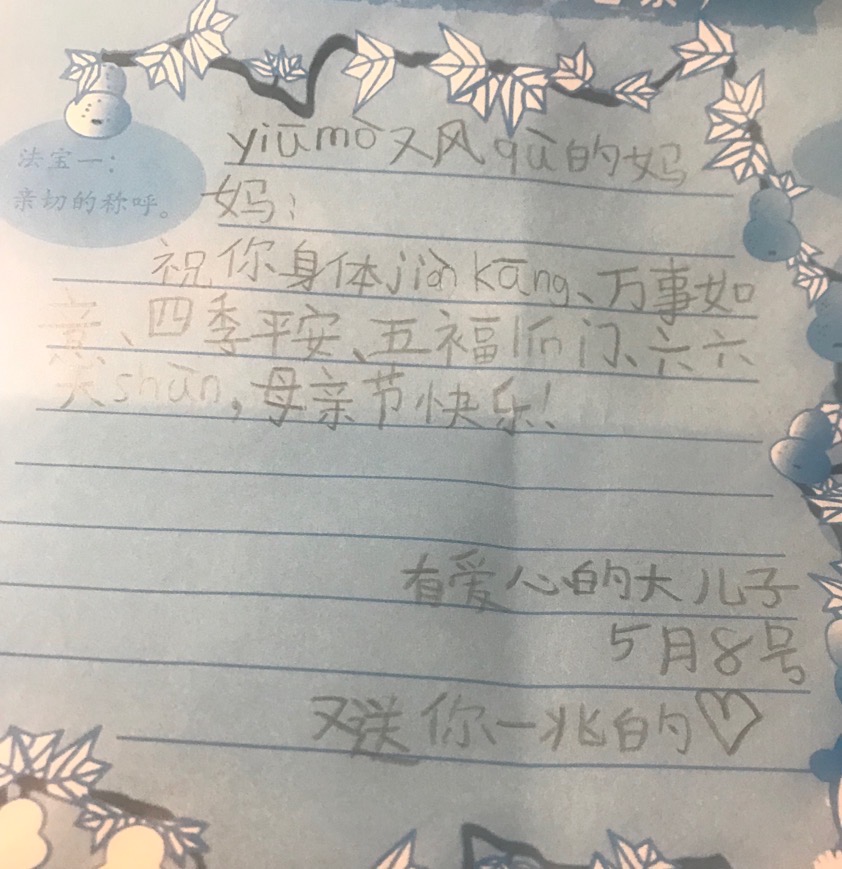 yiūmò又风qù的妈
法宝一：
亲切的称呼。
妈：
祝你身体jiàn kāng、万事如
意、四季平安、五福lín门、六六
大shūn，母亲节快乐！
有爱心的大儿子
5月8号
又送你一兆的♡